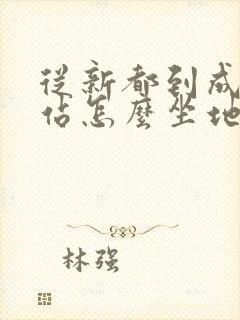 從新都到成
佔怎麼坐地
林强